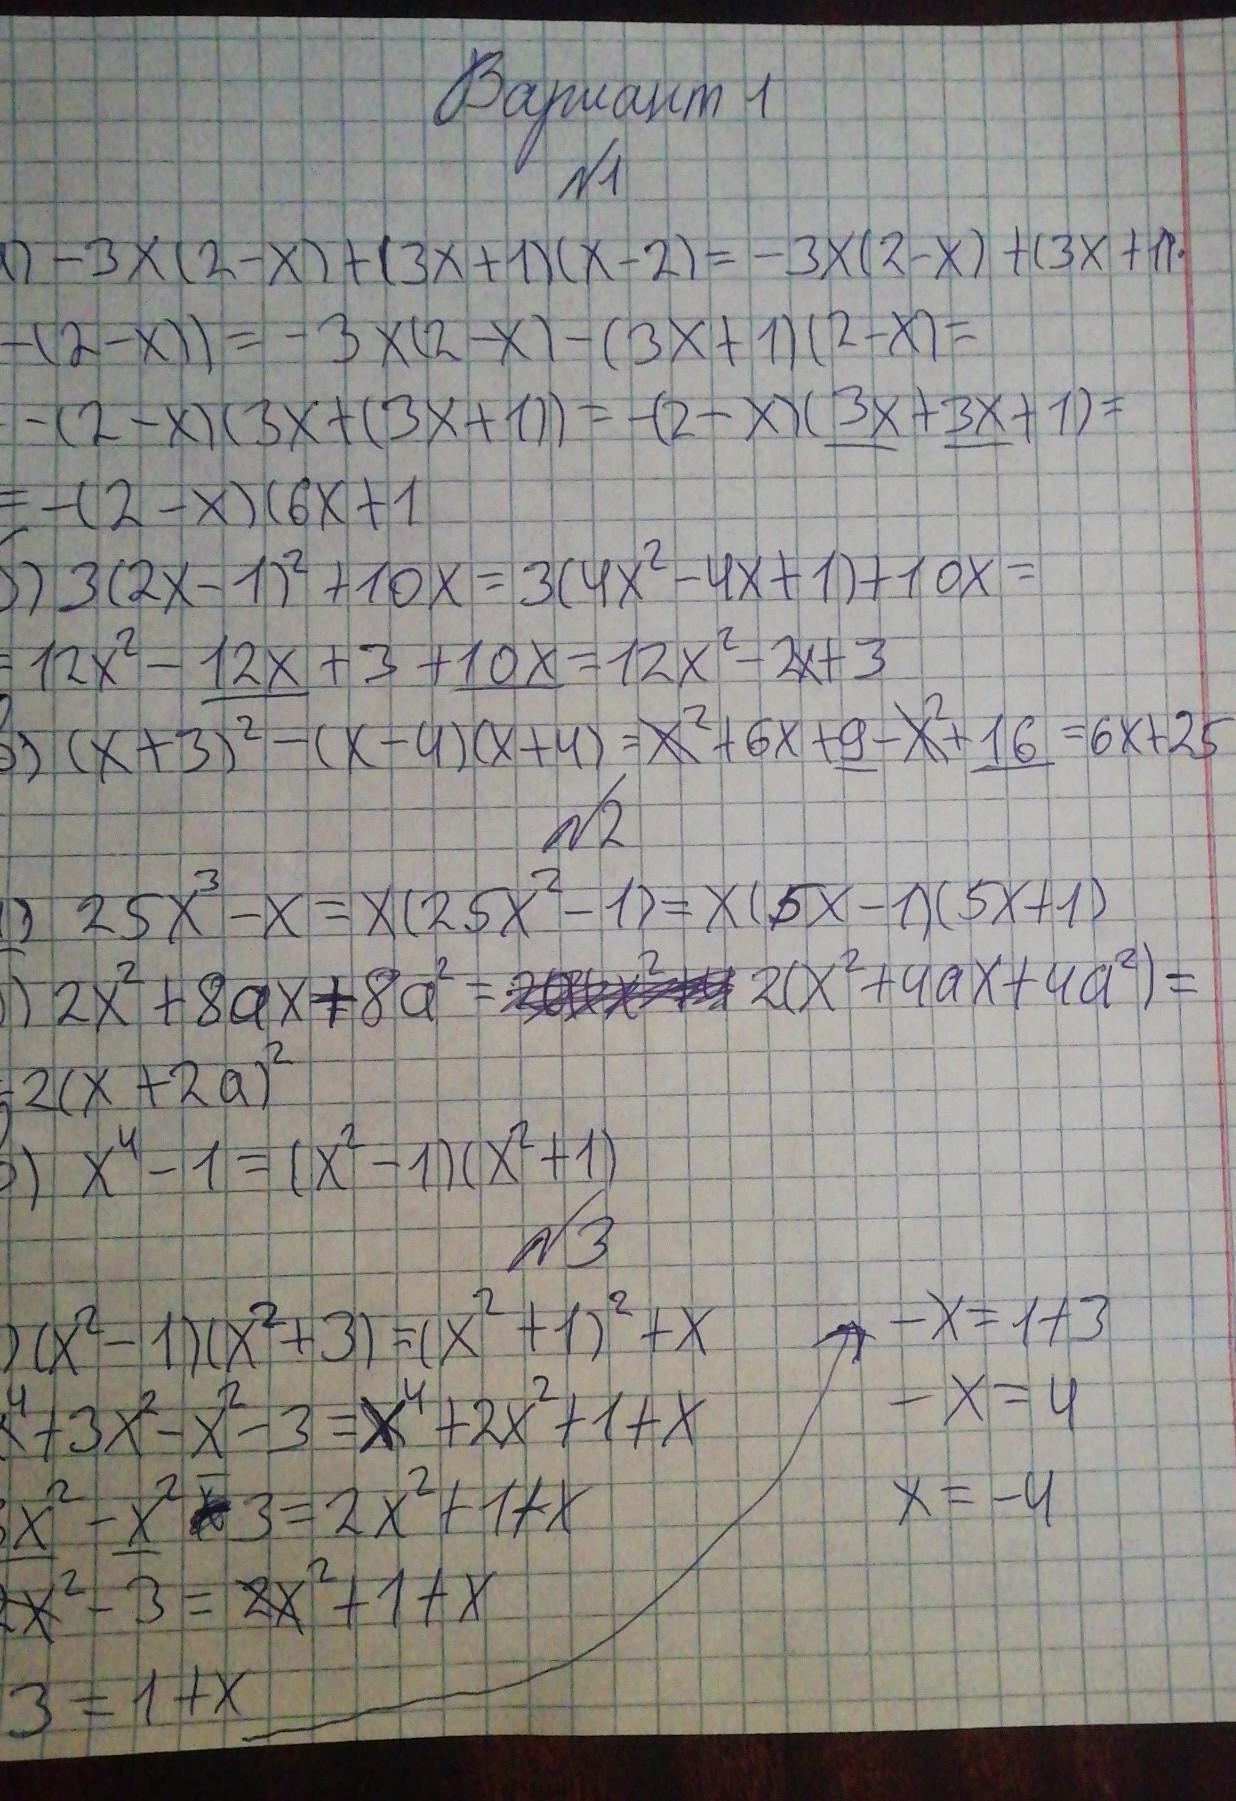 Вариант 1
№1
а) -3x(2-x)+(3x+1)(x-2)=-3x(2-x)+(3x+1)·
-(2-x))=-3x(2-x)-(3x+1)(2-x)=
=-(2-x)(3x+(3x+1))=-(2-x)(3x+3x+1)=
=-(2-x)(6x+1
б) 3(2x-1)²+10x=3(4x²-4x+1)+10x=
=12x²-12x+3+10x=12x²-2x+3
в) (x+3)²-(x-4)(x+4)=x²+6x+9-x²+16=6x+25
№2
а) 25x³-x=x(25x²-1)=x(5x-1)(5x+1)
б) 2x²+8ax+8a²= 2(x²+4ax+4a²)=
=2(x+2a)²
в) x⁴-1=(x²-1)(x²+1)
№3
)(x²-1)(x²+3)=(x²+1)²+x
x⁴+3x²-x²-3=x⁴+2x²+1+x
3x²-x²-3=2x²+1+x
2x²-3=2x²+1+x
3=1+x
-x=1+3
-x=4
x=-4